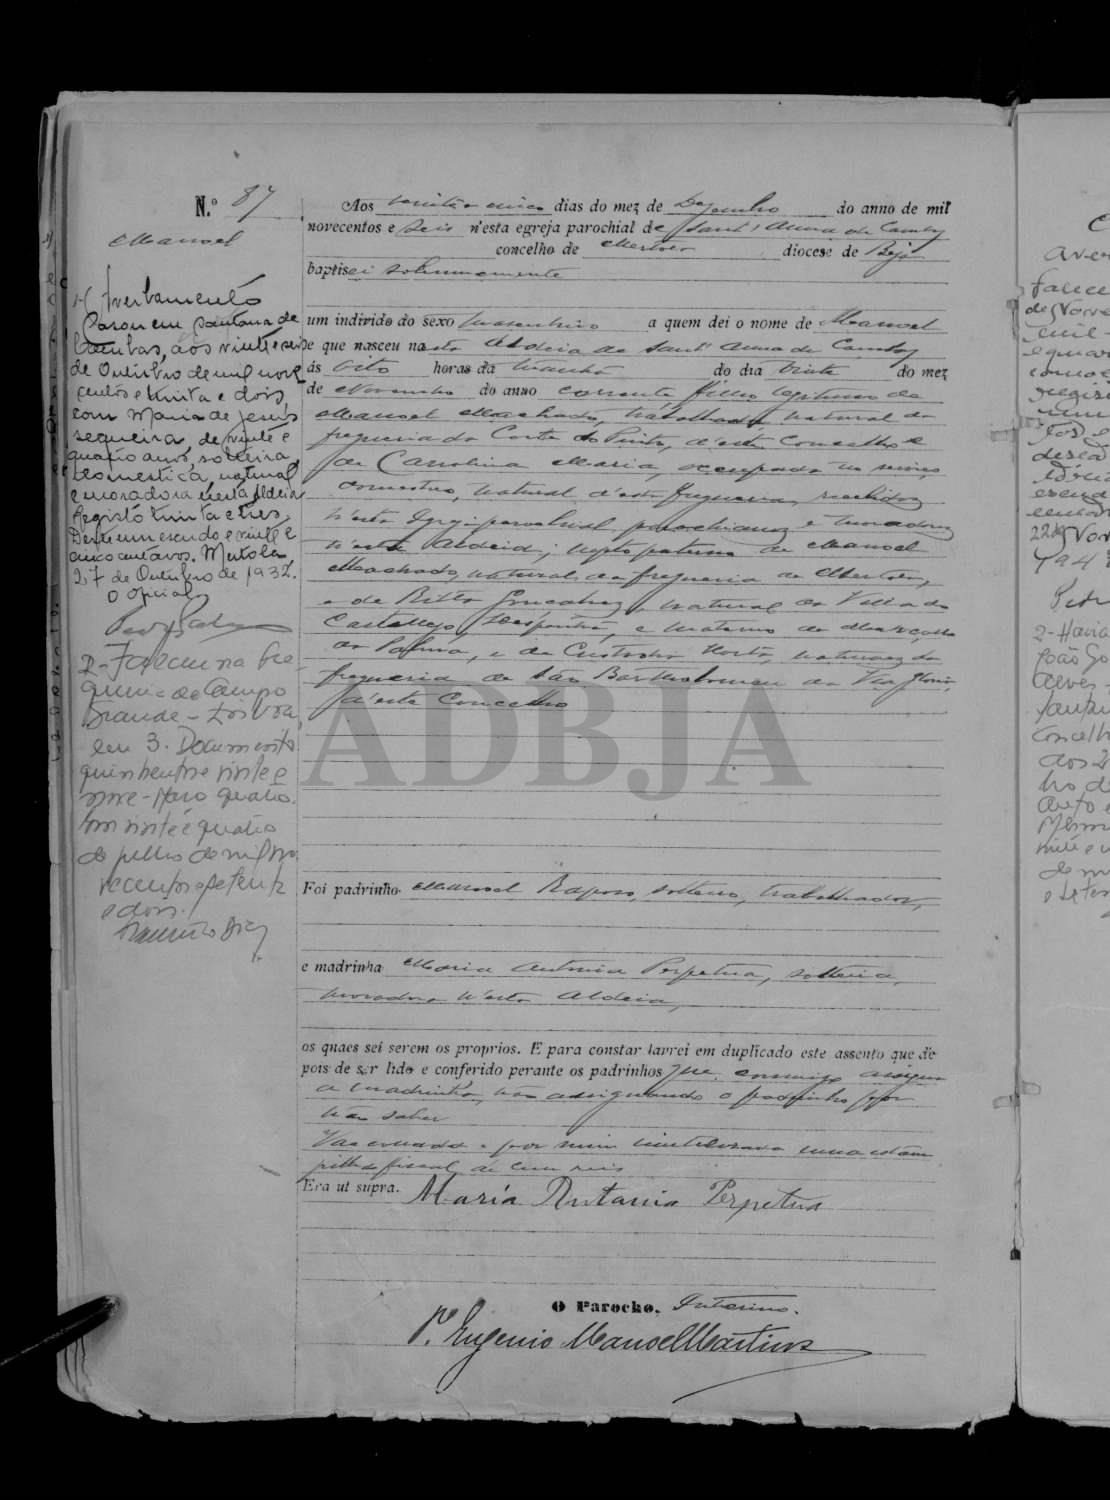 N.º 87
Manoel
Aos vinte e cinco dias do mez de Dezembro do anno de mil
novecentos e seis n'esta egreja parochial de Sant'Anna de Cambas
concelho de Mertola diocese de Beja
baptisei solemnemente
um individo do sexo masculino a quem dei o nome de Manoel
e que nasceu na esta Aldeia de Sant'Anna de Cambas
ás oito horas da manhã do dia vinte do mez
de Novembro do anno corrente filho legitimo de
Manoel Machado, trabalhador natural da
freguesia do Corte do Pinto, d'este concelho e
de Carolina Maria, occupada no serviço
domestico, natural d'esta freguesia, recebidos
n'esta Igreja parochial parochianos e moradores
n'esta Aldeia; neto paterno de Manoel
Machado, natural da freguesia de Mertola,
e de Rita Gonçalves, natural da Villa de
Castillejo, Hespanha, e materno de
da Palma, e de Custodia Horta, naturaes da
freguesia de São Bartholomeu da Via Gloria,
d'este Concelho
Foi padrinho Manoel Raposo, solteiro, trabalhador,
e madrinha Maria Antonia Perpetua, solteira,
moradora n'esta Aldeia,
os quaes sei serem os proprios. E para constar lavrei em duplicado este assento que de
pois de ser lido e conferido perante os padrinhos que commigo assigna
a madrinha, não assignando o padrinho por
não saber
Vae collada e por mim inutilizada uma estam
pilha fiscal de cem reis
Era ut supra. Maria Antonia Perpetua
O Parocho, Interino.
P.e Eugenio Manoel Martins
1-( Averbamento
Casou em Santana de
Cambas, aos vinte e seis
de Outubro de mil nove
centos e trinta e dois,
com Maria de Jesus
Sequeira, de vinte e
quatro anos, solteira,
domestica, natural
e moradora nesta Aldeia
Registo trinta e tres.
Deste um escudo e vinte e
cinco centavos. Mertola
27 de Outubro de 1932.
O Oficial
2-Faleceu na fre
guesia do Campo
Grande - Lisboa,
em 3. Documento
quinhentos e vinte e
nove - Maço quatro.
Em vinte e quatro
de julho de mil no
vecentos e setenta
e dois.
ADBJA